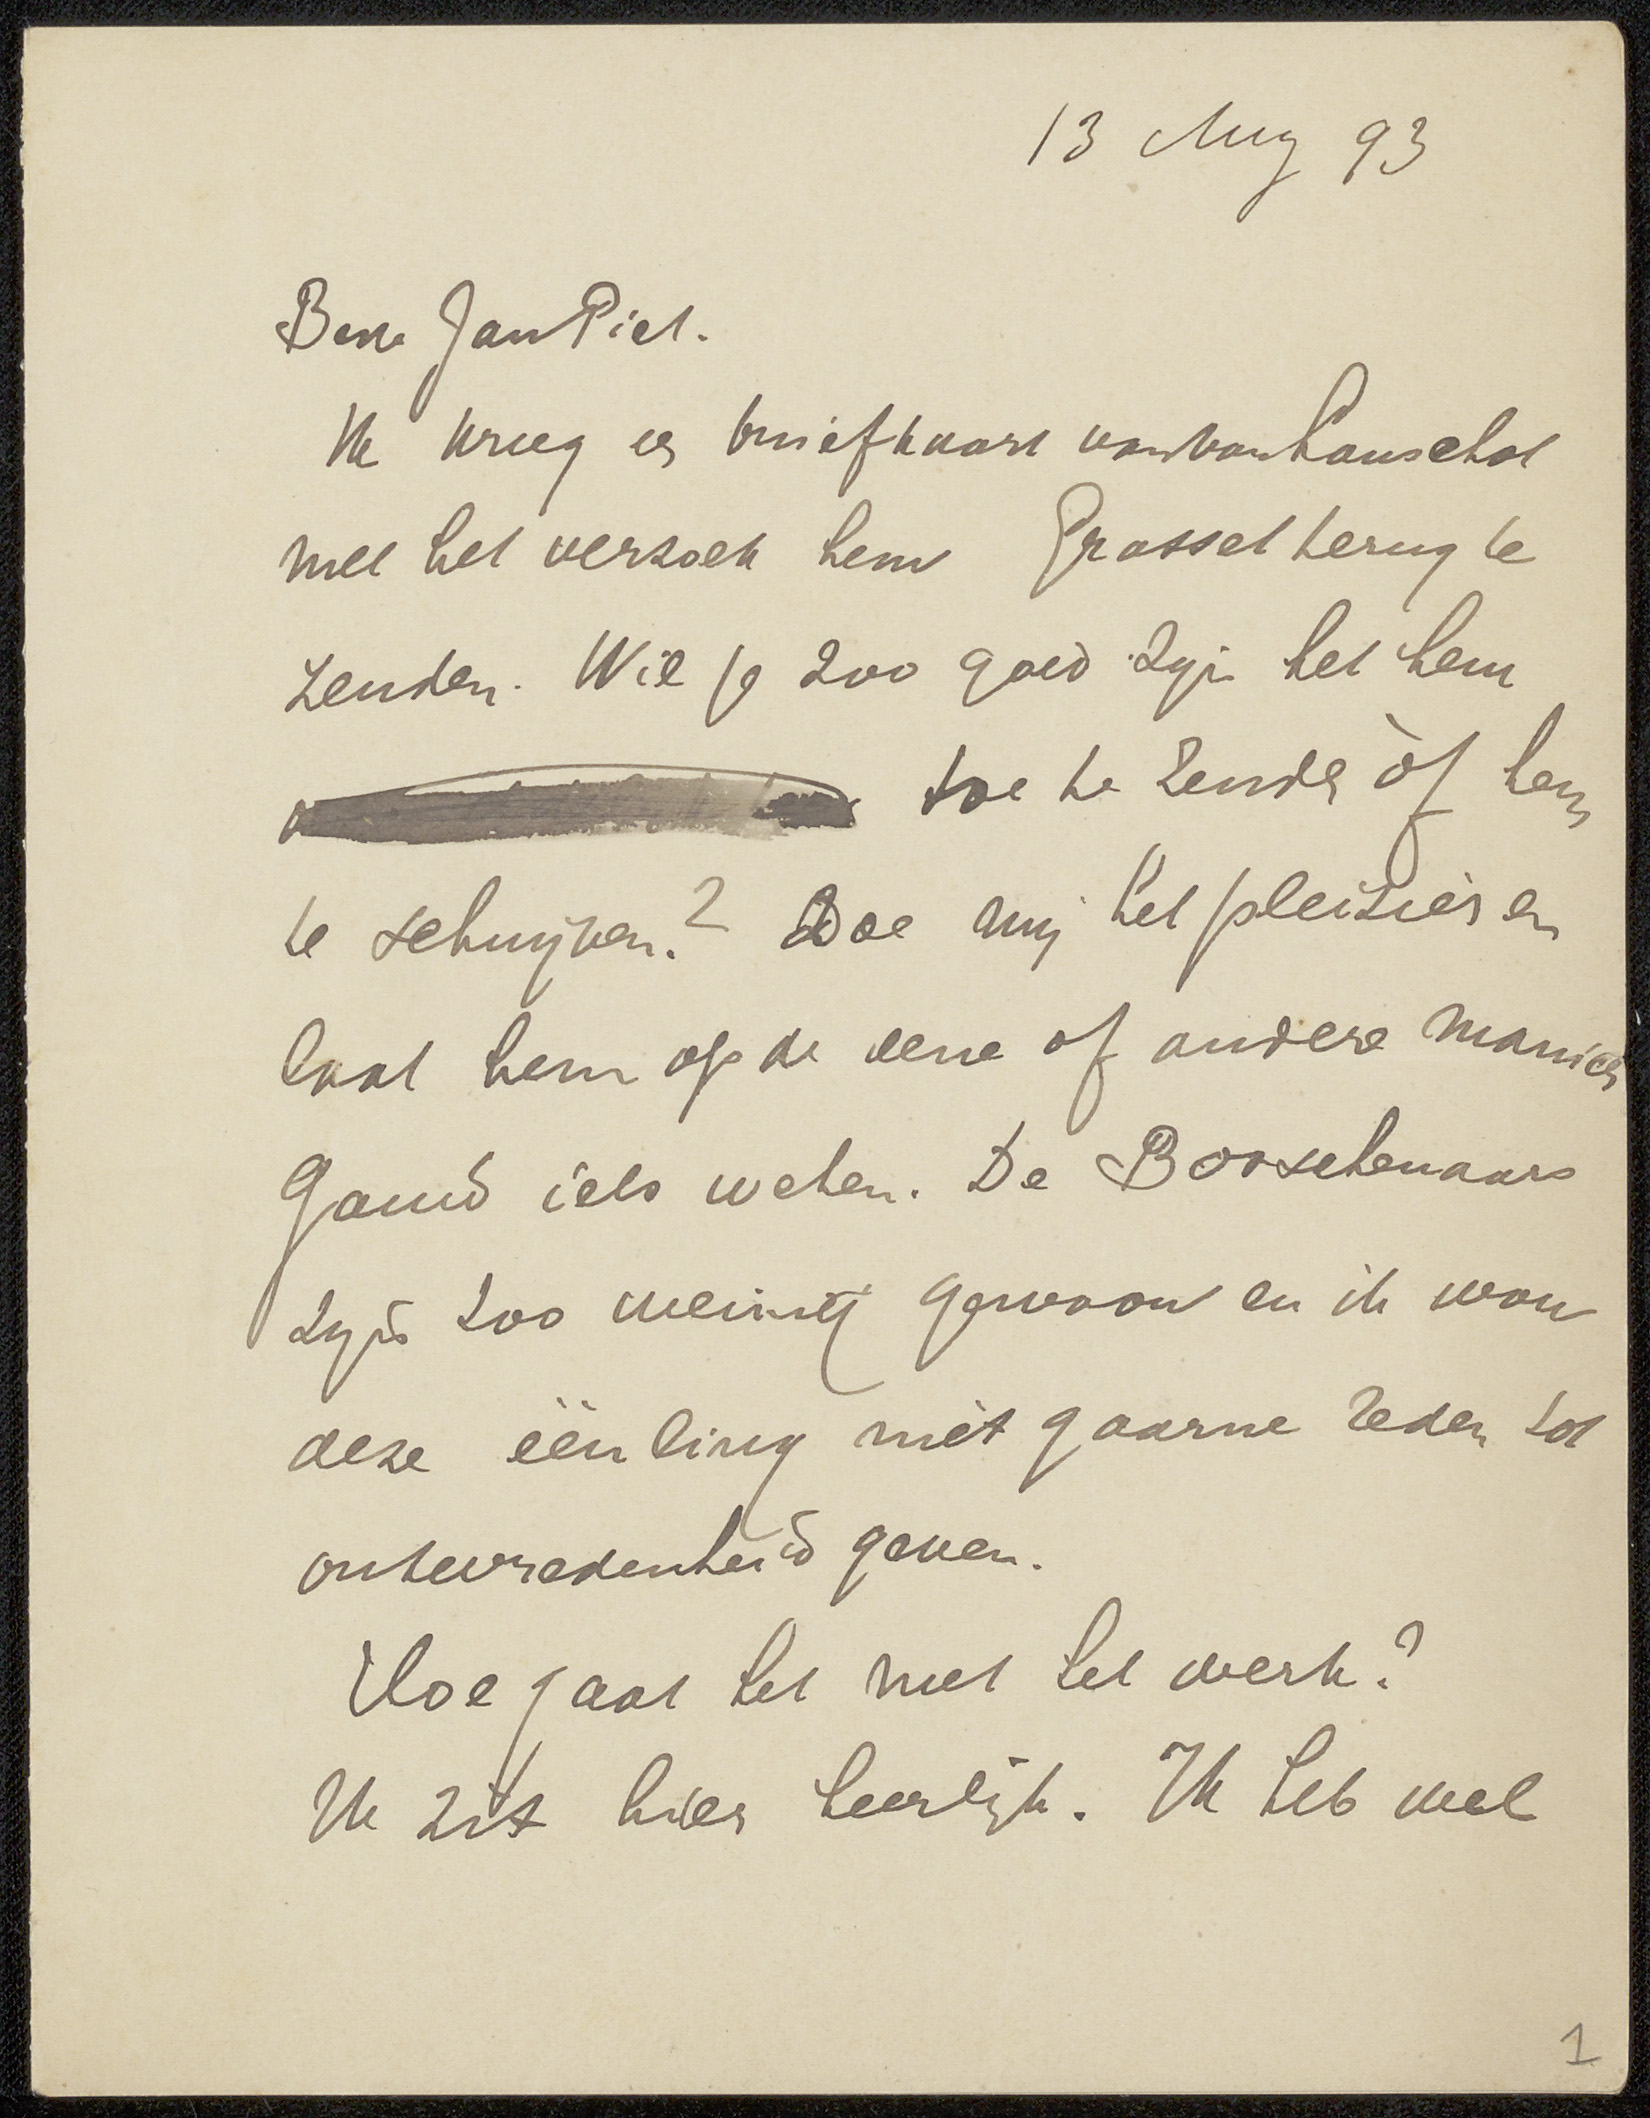 13 Aug 93
Beste Jan Piet.
Ik kreeg een briefkaart van van Lanschot
met het verzoek hem Grasset terug te
zenden. Wil je zoo goed zijn het hem
toe te zenden òf hem
te schrijven? Doe mij het pleizier en
laat hem op de eene of andere manier
gauw iets weten. De Bosschenaars
zijn zoo weinig gewoon en ik wou
deze éénling niet gaarne reden tot
ontevredenheid geven.
Hoe gaat het met het werk?
Ik zit hier heerlijk. Ik heb veel
1